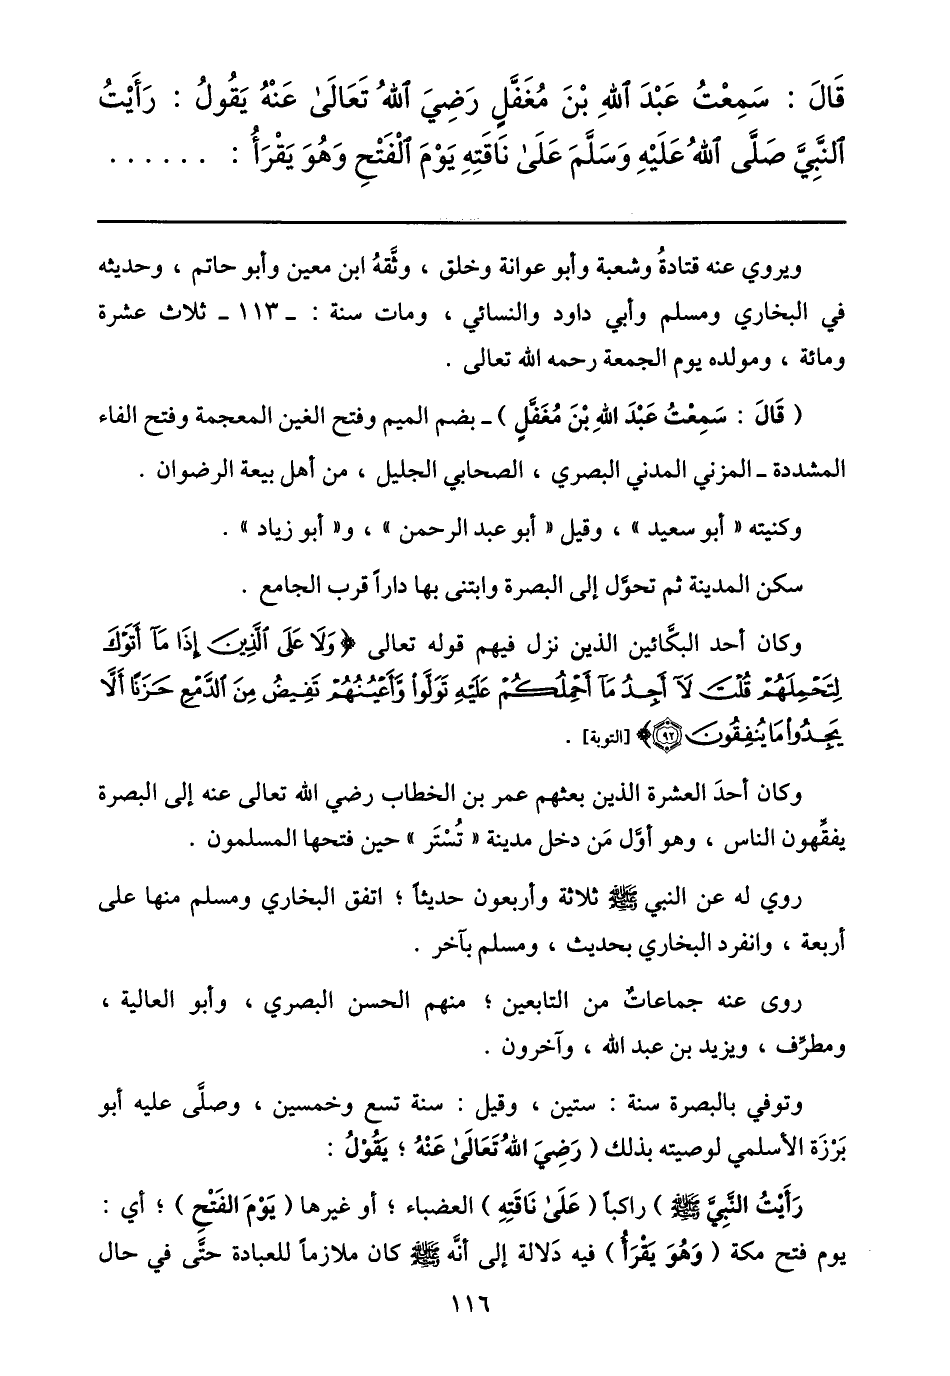 قَالَ : سَمِعْتُ عَبْدَ ٱللهِ بْنَ مُغَفَّلٍ رَضِيَ ٱللهُ تَعَالَىٰ عَنْهُ يَقُولُ : رَأَيْتُ
ٱلنَّبِيَّ صَلَّى ٱللهُ عَلَيْهِ وَسَلَّمَ عَلَىٰ نَاقَتِهِ يَوْمَ ٱلْفَتْحِ وَهُوَ يَقْرَأُ : ......
ويروي عنه قتادةُ وشعبة وأبو عوانة وخلق ، وثَّقهُ ابن معين وأبو حاتم ، وحديثه
في البخاري ومسلم وأبي داود والنسائي ، ومات سنة : ـ ١١٣ ـ ثلاث عشرة
ومائة ، ومولده يوم الجمعة رحمه الله تعالى .
( قَالَ : سَمِعْتُ عَبْدَ اللهِ بْنَ مُغَفَّلٍ ) ـ بضم الميم وفتح الغين المعجمة وفتح الفاء
المشددة ـ المزني المدني البصري ، الصحابي الجليل ، من أهل بيعة الرضوان .
وكنيته « أبو سعيد » ، وقيل « أبو عبد الرحمن » ، و« أبو زياد » .
سكن المدينة ثم تحوَّل إلى البصرة وابتنى بها داراً قرب الجامع .
وكان أحد البكَّائين الذين نزل فيهم قوله تعالى ﴿وَلَا عَلَى ٱلَّذِينَ إِذَا مَآ أَتَوْكَ
لِتَحْمِلَهُمْ قُلْتَ لَآ أَجِدُ مَآ أَحْمِلُكُمْ عَلَيْهِ تَوَلَّوا۟ وَّأَعْيُنُهُمْ تَفِيضُ مِنَ ٱلدَّمْعِ حَزَنًا أَلَّا
يَجِدُوا۟ مَا يُنفِقُونَ ٩٢﴾ [التوبة] .
وكان أحدَ العشرة الذين بعثهم عمر بن الخطاب رضي الله تعالى عنه إلى البصرة
يفقِّهون الناس ، وهو أوَّل مَن دخل مدينة « تُسْتَر » حين فتحها المسلمون .
روي له عن النبي ﷺ ثلاثة وأربعون حديثاً ؛ اتفق البخاري ومسلم منها على
أربعة ، وانفرد البخاري بحديث ، ومسلم بآخر .
روى عنه جماعاتٌ من التابعين ؛ منهم الحسن البصري ، وأبو العالية ،
ومطرِّف ، ويزيد بن عبد الله ، وآخرون .
وتوفي بالبصرة سنة : ستين ، وقيل : سنة تسع وخمسين ، وصلَّى عليه أبو
بَرْزَة الأسلمي لوصيته بذلك ( رَضِيَ اللهُ تَعَالَىٰ عَنْهُ ؛ يَقُوْلُ :
رَأَيْتُ النَّبِيَّ ﷺ ) راكباً ( عَلَىٰ نَاقَتِهِ ) العضباء ؛ أو غيرها ( يَوْمَ الفَتْحِ ) ؛ أي :
يوم فتح مكة ( وَهُوَ يَقْرَأُ ) فيه دَلالة إلى أنَّه ﷺ كان ملازماً للعبادة حتَّى في حال
١١٦